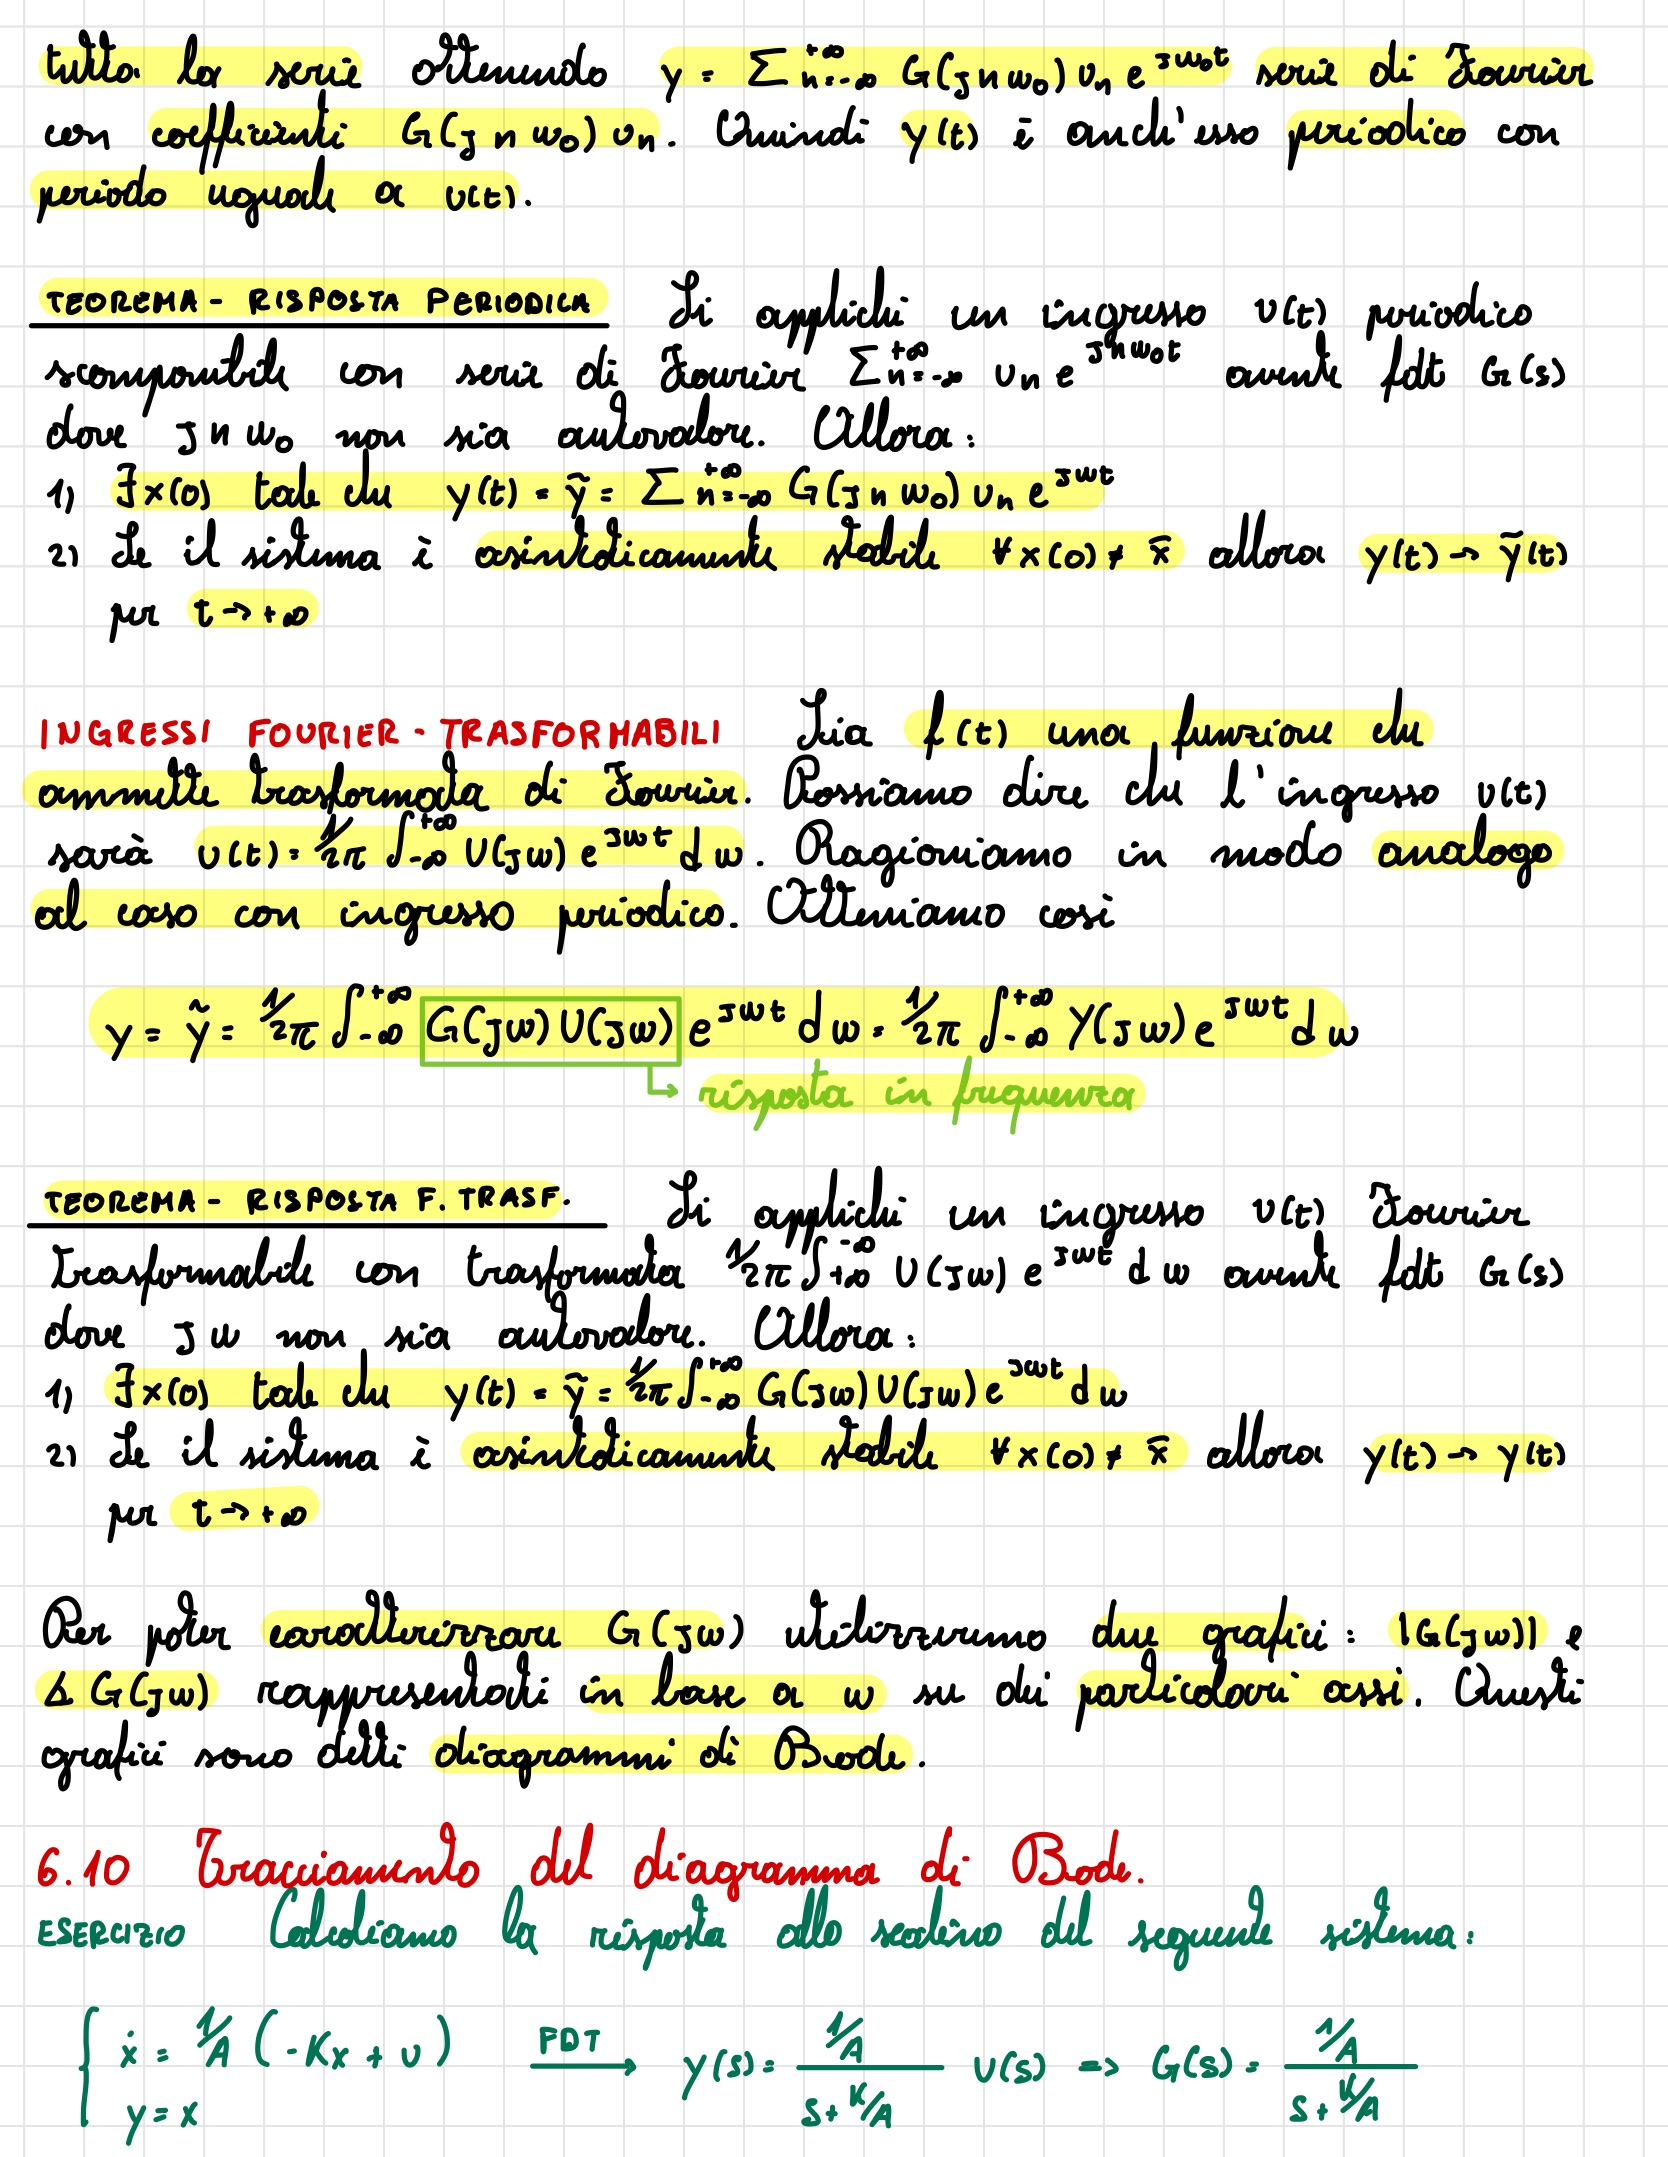 tutta la serie ottenendo y = Σ n=-∞ +∞ G(jnω₀) υₙ e^jω₀t serie di Fourier
con coefficienti G(jnω₀) υₙ. Quindi y(t) è anch'esso periodico con
periodo uguale a υ(t).
TEOREMA - RISPOSTA PERIODICA Si applichi un ingresso υ(t) periodico
scomponibile con serie di Fourier Σ n=-∞ +∞ υₙ e^jnω₀t avente fdt G(s)
dove jnω₀ non sia autovalore. Allora:
1) ∃x(0) tale che y(t) = ỹ = Σ n=-∞ +∞ G(jnω₀) υₙ e^jωt
2) Se il sistema è asintoticamente stabile ∀x(0) ≠ x̃ allora y(t) → ỹ(t)
per t → +∞
INGRESSI FOURIER - TRASFORMABILI Sia f(t) una funzione che
ammette trasformata di Fourier. Possiamo dire che l'ingresso υ(t)
sarà υ(t) = 1/2π ∫-∞ +∞ U(jω) e^jωt dω. Ragioniamo in modo analogo
al caso con ingresso periodico. Otteniamo così
y = ỹ = 1/2π ∫-∞ +∞ G(jω) U(jω) e^jωt dω = 1/2π ∫-∞ +∞ Y(jω) e^jωt dω
↳ risposta in frequenza
TEOREMA - RISPOSTA F. TRASF. Si applichi un ingresso υ(t) Fourier
Trasformabile con trasformata 1/2π ∫+∞ -∞ U(jω) e^jωt dω avente fdt G(s)
dove jω non sia autovalore. Allora:
1) ∃x(0) tale che y(t) = ỹ = 1/2π ∫-∞ +∞ G(jω) U(jω) e^jωt dω
2) Se il sistema è asintoticamente stabile ∀x(0) ≠ x̃ allora y(t) → y(t)
per t → +∞
Per poter caratterizzare G(jω) utilizzeremo due grafici: |G(jω)| e
∡ G(jω) rappresentati in base a ω su dei particolari assi. Questi
grafici sono detti diagrammi di Bode.
6.10 Tracciamento del diagramma di Bode.
ESERCIZIO Calcoliamo la risposta allo scalino del seguente sistema:
{ ẋ = 1/A (-Kx + υ) FDT → y(s) = (1/A)/(s + K/A) U(s) => G(s) = (1/A)/(s + K/A)
y = x